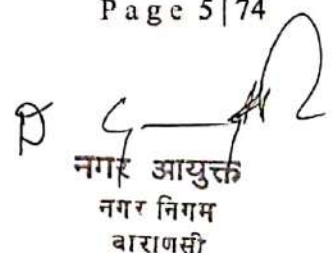 Page 5|74
नगर आयुक्त
नगर निगम
वाराणसी